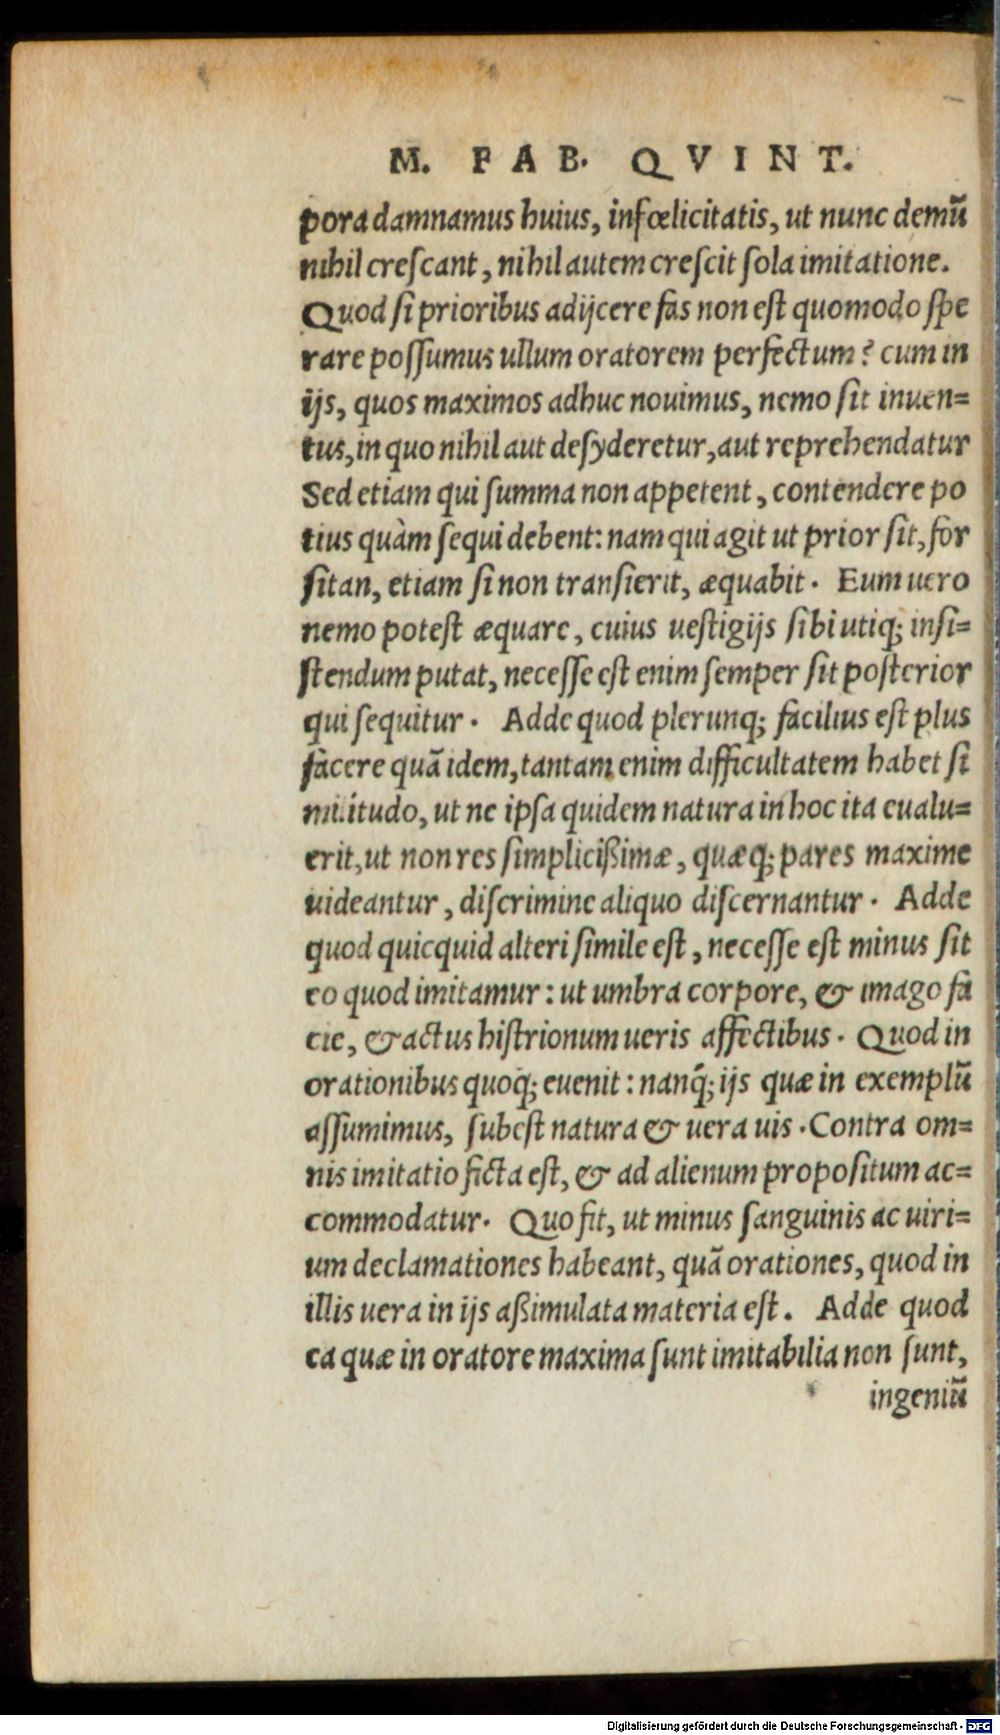 M. FAB. QVINT.
pora damnamus huius, infœlicitatis, ut nunc demū
nihil creſcant, nihil autem creſcit ſola imitatione.
Quod ſi prioribus adijcere fas non eſt quomodo ſpe
rare poſſumus ullum oratorem perfectum? cum in
ijs, quos maximos adhuc nouimus, nemo ſit inuen=
tus, in quo nihil aut deſyderetur, aut reprehendatur
Sed etiam qui ſumma non appetent, contendere po
tius quàm ſequi debent: nam qui agit ut prior ſit, for
ſitan, etiam ſi non tranſierit, æquabit. Eum uero
nemo poteſt æquare, cuius ueſtigijs ſibi utiq; inſi=
ſtendum putat, neceſſe eſt enim ſemper ſit poſterior
qui ſequitur. Adde quod plerunq; facilius eſt plus
facere quã idem, tantam enim difficultatem habet ſi
militudo, ut ne ipſa quidem natura in hoc ita eualu=
erit, ut non res ſimpliciſſimæ, quæq; pares maxime
uideantur, diſcrimine aliquo diſcernantur. Adde
quod quicquid alteri ſimile eſt, neceſſe eſt minus ſit
eo quod imitamur: ut umbra corpore, & imago fa
cie, & actus hiſtrionum ueris affectibus. Quod in
orationibus quoq; euenit: nanq̃; ijs quæ in exemplū
aſſumimus, ſubeſt natura & uera uis. Contra om=
nis imitatio ficta eſt, & ad alienum propoſitum ac=
commodatur. Quo fit, ut minus ſanguinis ac uiri=
um declamationes habeant, quã orationes, quod in
illis uera in ijs aſſimulata materia eſt. Adde quod
ea quæ in oratore maxima ſunt imitabilia non ſunt,
ingeniū
Digitalisierung gefördert durch die Deutsche Forschungsgemeinschaft - DFG